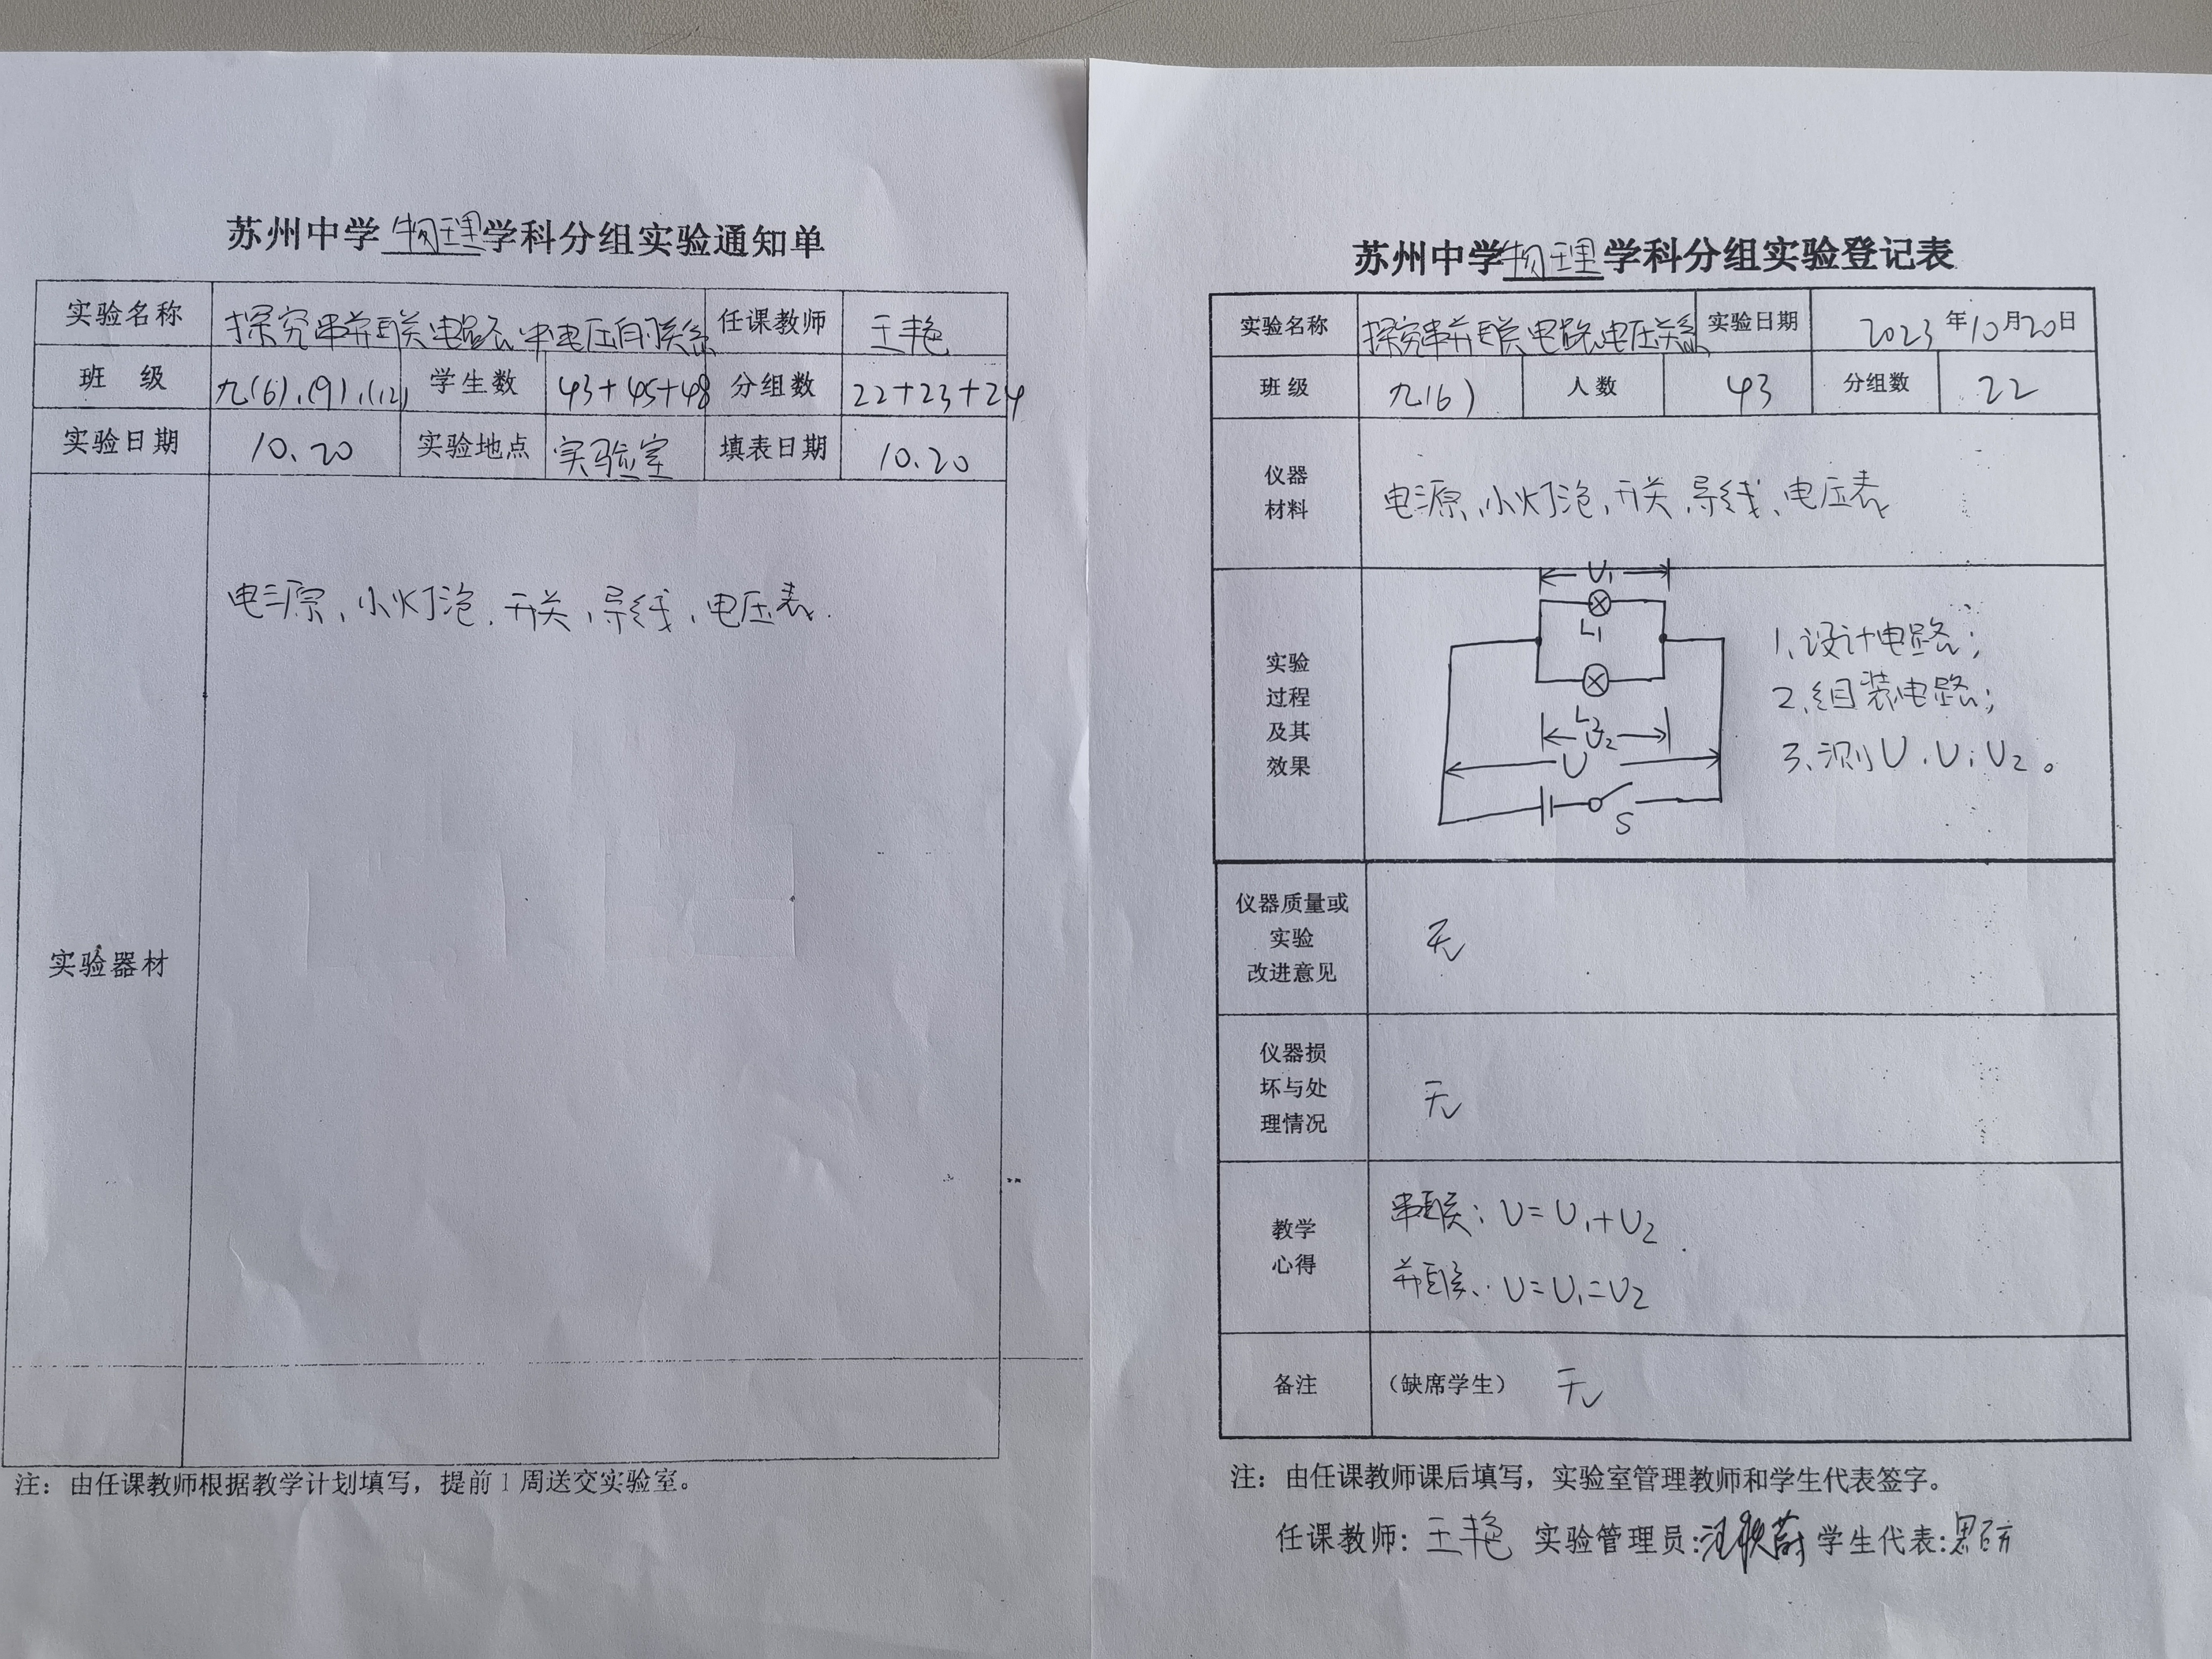 苏州中学物理学科分组实验通知单
实验名称 探究串并联电路中电压的关系 任课教师 王艳
班 级 九(6).(9).(12) 学生数 43+45+48 分组数 22+23+24
实验日期 10.20 实验地点 实验室 填表日期 10.20
实验器材
电源、小灯泡、开关、导线、电压表.
注：由任课教师根据教学计划填写，提前1周送交实验室。
苏州中学物理学科分组实验登记表
实验名称 探究串并联电路电压关系 实验日期 2023年10月20日
班级 九(6) 人数 43 分组数 22
仪器
材料
电源、小灯泡、开关、导线、电压表
实验
过程
及其
效果
U₁
L₁
L₂
U₂
U
S
1、设计电路；
2、组装电路；
3、测U、U₁、U₂。
仪器质量或
实验
改进意见
无
仪器损
坏与处
理情况
无
教学
心得
串联：U=U₁+U₂
并联：U=U₁=U₂
备注 （缺席学生） 无
注：由任课教师课后填写，实验室管理教师和学生代表签字。
任课教师：王艳 实验管理员: 学生代表: